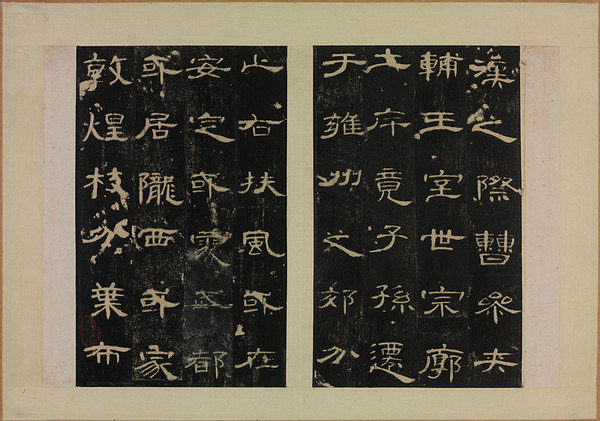 漢之際曹參夾
輔王室世宗廓
土斥竟子孫遷
于雍州之郊分
止右扶風或在
安定或處武都
或居隴西或家
敦煌枝分葉布